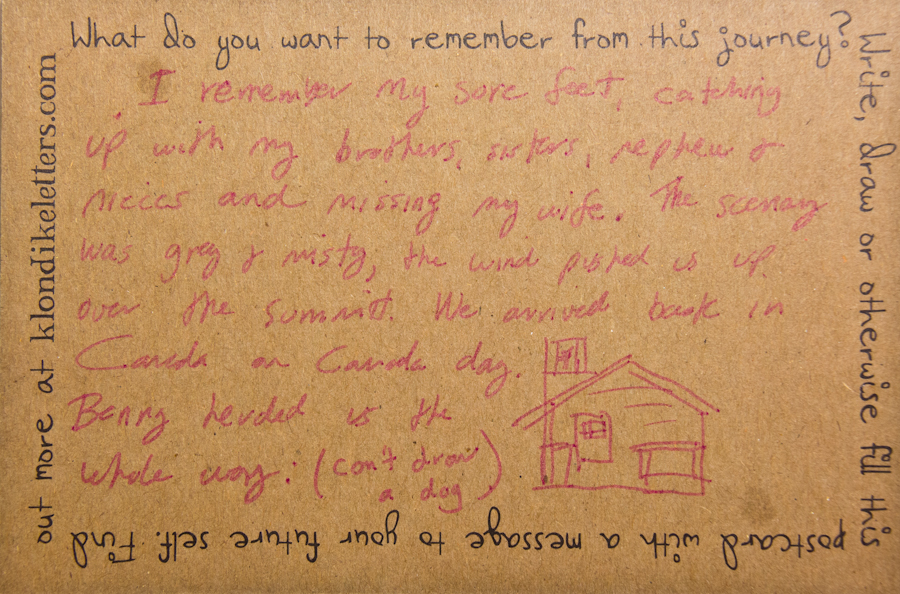 What do you want to remember from this journey?
Write, draw or otherwise fill this
postcard with a message to your future self. Find
out more at klondikeletters.com
I remember my sore feet, catching
up with my brothers, sisters, nephew &
nieces and missing my wife. The scenery
was grey & misty, the wind pushed us up
over the summit. We arrived back in
Canada on Canada day.
Benny herded us the
whole way. (can't draw
a dog)